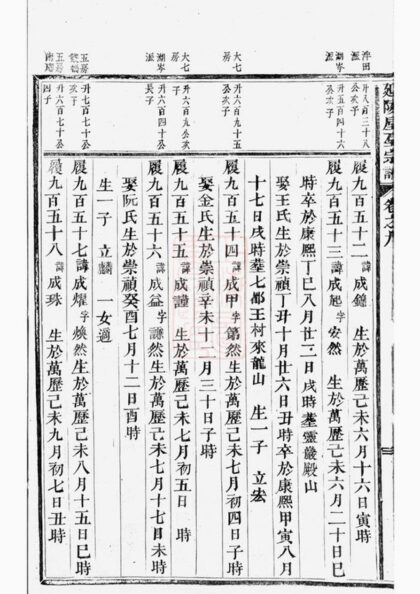 延陵宗譜 卷之九
履九百五十二 諱成鐘 生於萬歷己未六月十六日寅時
履九百五十三 諱成起 字安然 生於萬歷己未六月二十日巳
時卒於康熙丁巳八月廿三日戌時墓靈巖殿山
娶王氏生於崇禎丁丑十月廿六日丑時卒於康熙甲寅八月
十七日戌時墓七都王村來龍山 生一子 立宏
履九百五十四 諱成甲 字第然 生於萬歷己未七月初四日子時
娶金氏生於崇禎辛未十二月三十日子時
履九百五十五 諱成 生於萬歷己未七月初五日 時
履九百五十六 諱成益 字謙然 生於萬歷己未七月十七日未時
娶阮氏生於崇禎癸酉七月十二日酉時
生一子 立麟 一女適
履九百五十七 諱成燿 字煥然 生於萬歷己未八月十五日巳時
履九百五十八 諱成珠 生於萬歷己未九月初七日丑時
浮田派
升八百三十八公次子
湖岑派
升五百四十六公次子
大七房
升六百九十五公次子
大七房
湖岑派
升六百四十公長子
五房
升七百七十公次子
五房
升六百七十公四子